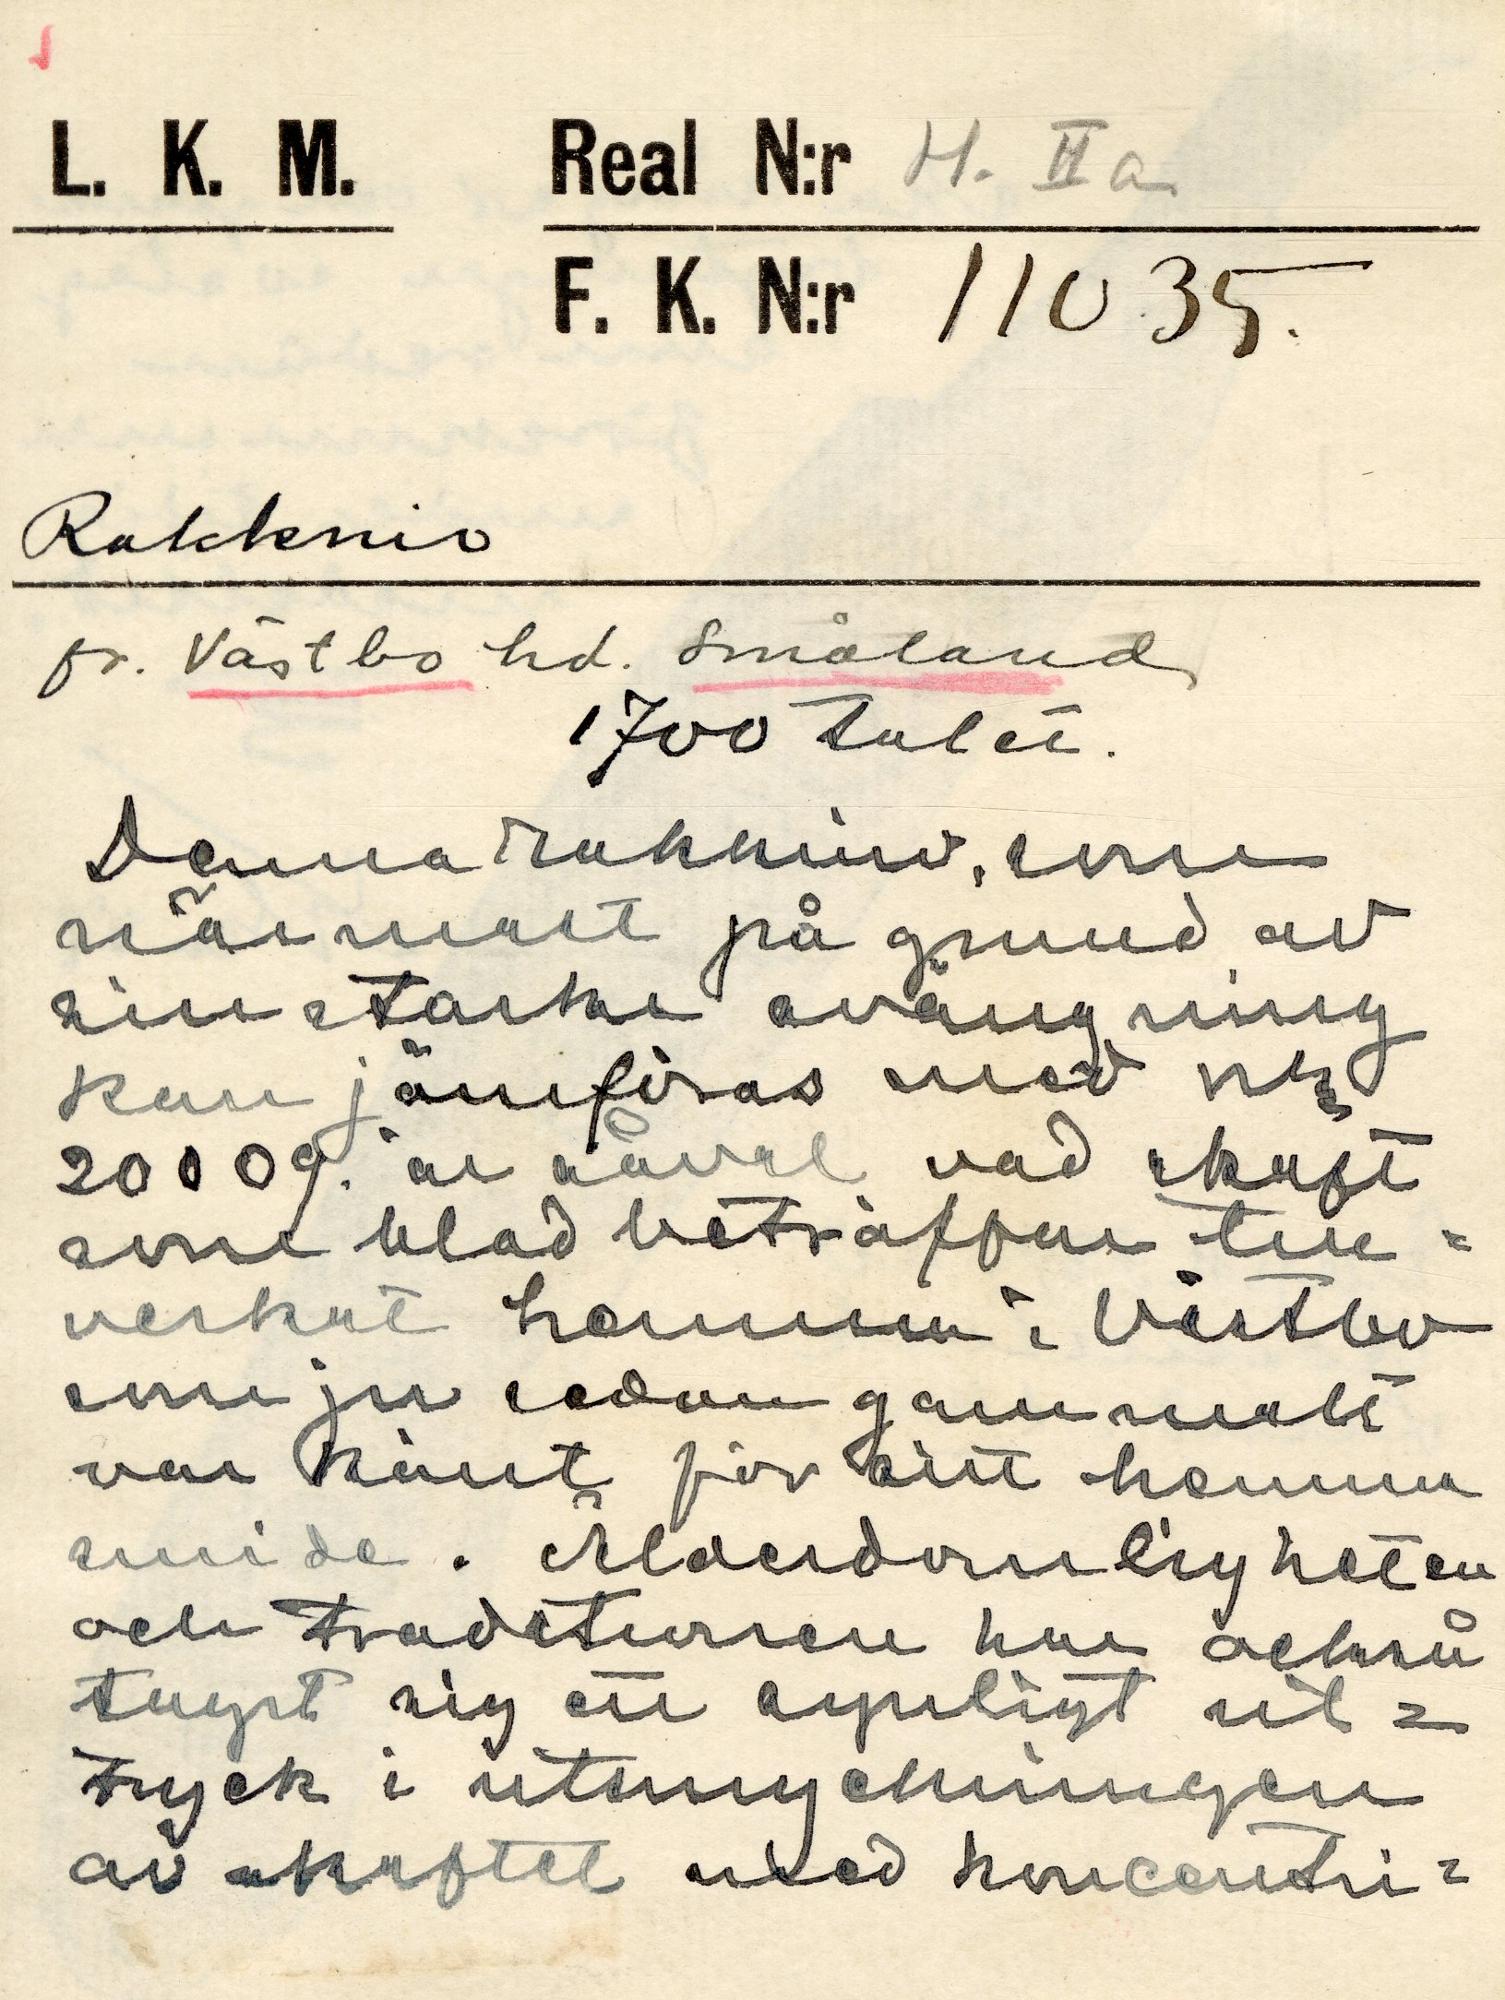 L. K. M. Real N:r H. II a.
F. K. N:r 11035.
Rakkniv
fr. Västbo hd. Småland,
1700 talet.
Denna rakkniv, som
närmast på grund av
sin starka svängning
kan jämföras med nr
20009. är såväl vad skaft
som blad beträffar till=
verkat hemma i Västbo
som ju sedan gammalt
var känt för sitt hemma
smide. Ålderdomligheten
och traditionen har också
tagit sig ett synligt ut=
tryck i utsmyckningen
av skaftet med koncentri=